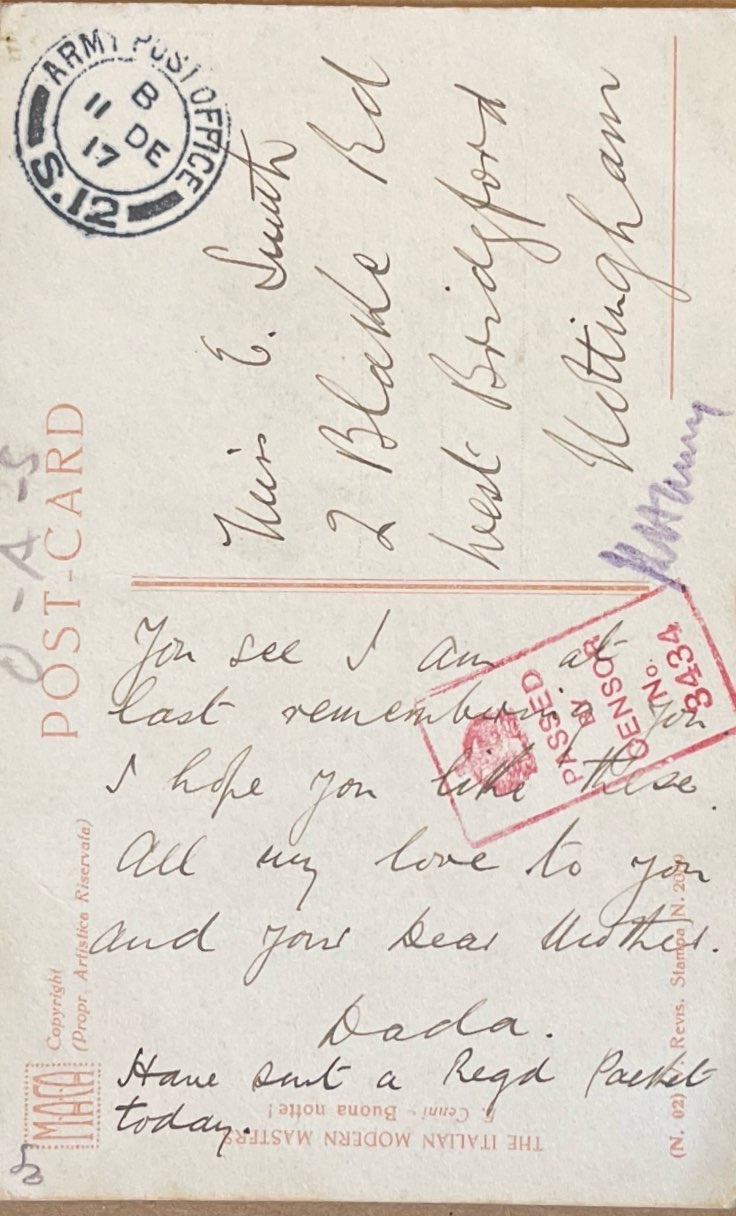 ARMY POST OFFICE
B
11 DE
17
S.12
O-A-S
POST-CARD
Miss E. Smith
2 Blake Rd
West Bridgford
Nottingham
PASSED
BY
CENSOR
No.
3434
You see I am at
last remembering you
I hope you like these.
All my love to you
and your Dear Mother.
Dada.
Have sent a Regd Packet
today.
M.A.F.A
Copyright
(Propr Artistica Riservata)
THE ITALIAN MODERN MASTERS
F. Cenni - Buona notte!
(N. 02) Revis. Stampa N.